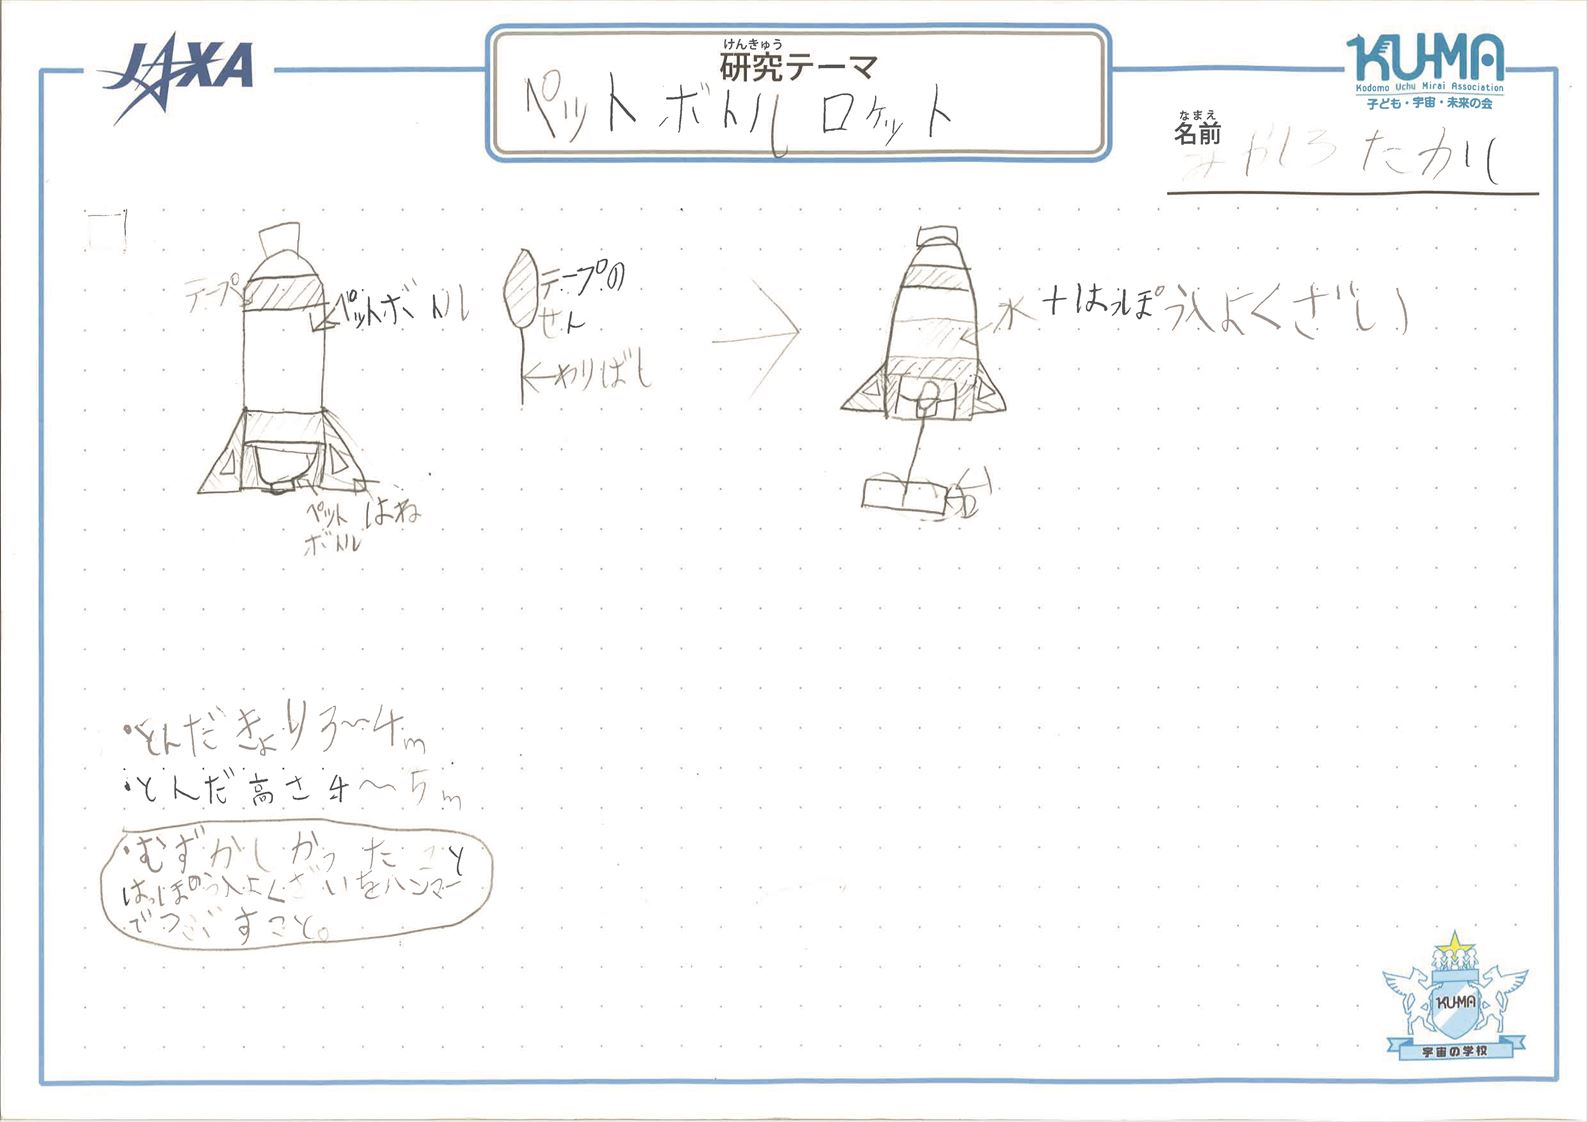 JAXA
けんきゅう
研究テーマ
ペットボトルロケット
KU-MA
Kodomo Uchu Mirai Association
子ども・宇宙・未来の会
なまえ
名前
みやしろたかし
テープ
ペットボトル
テープの
せん
わりばし
水+はっぽう入よくざい
ペット
ボトル
はね
・とんだきょり3〜4m
・とんだ高さ4〜5m
・むずかしかったこと
はっぽのう入よくざいをハンマー
でつぶすこと。
KU-MA
宇宙の学校